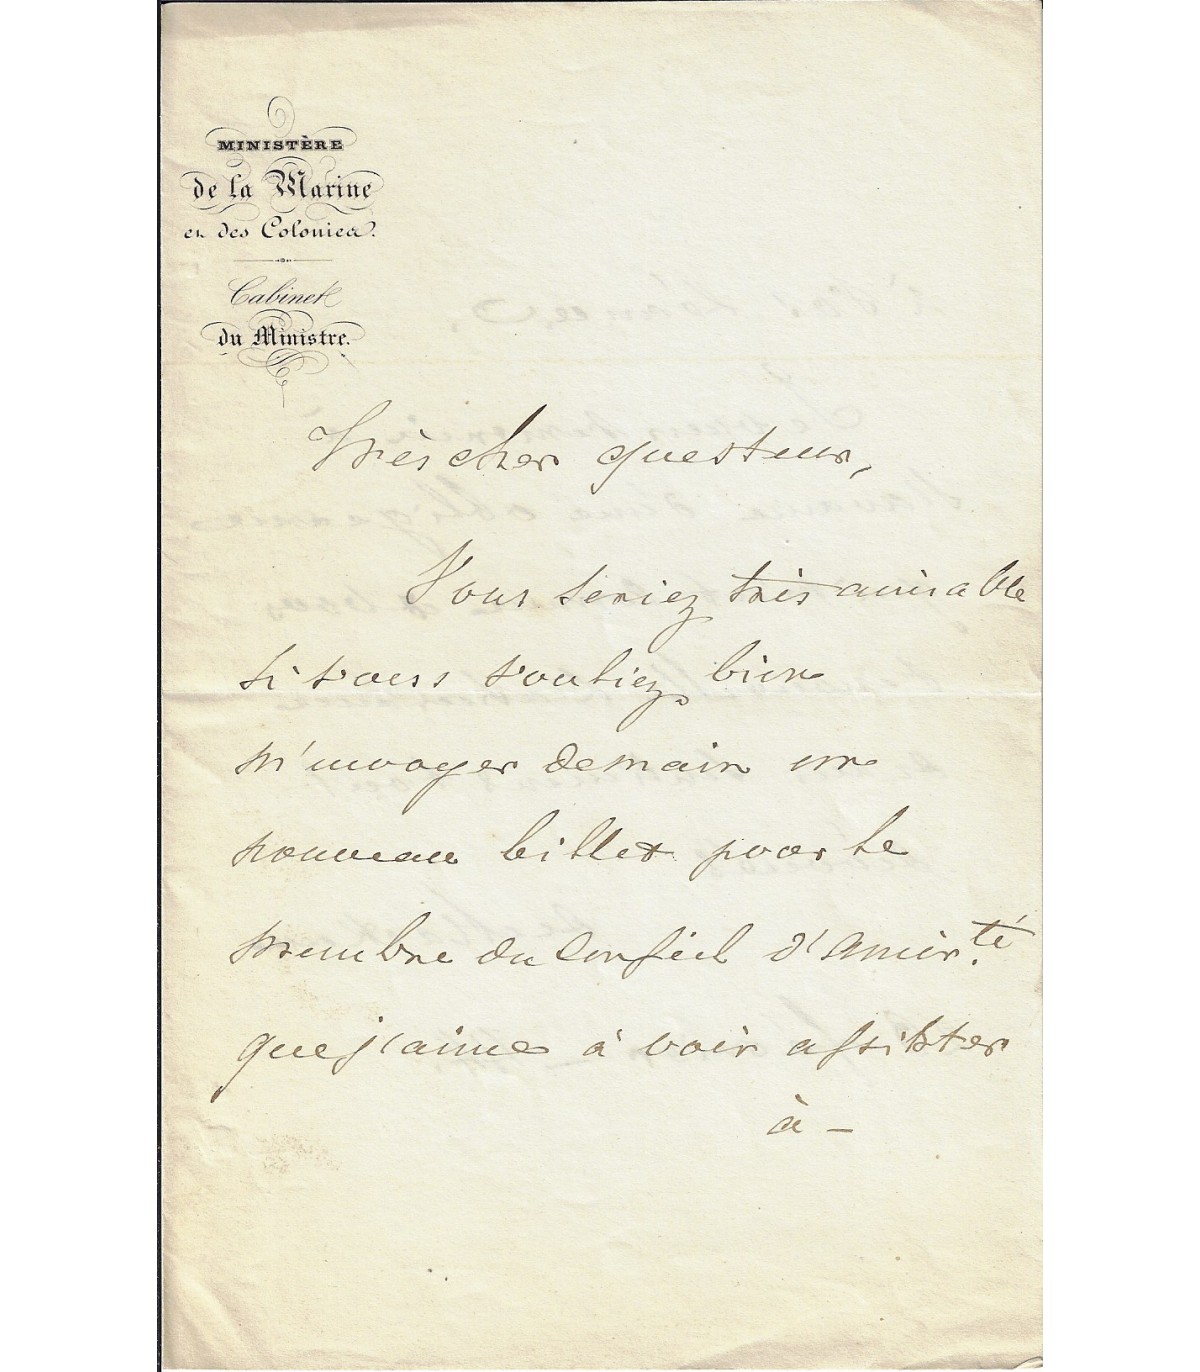 MINISTÈRE
de la Marine
et des Colonies.
Cabinet
du Ministre.
Très cher questeur,
Vous seriez très aimable
si vous vouliez bien
m'envoyer demain un
nouveau billet pour le
membre du Conseil d'Amir.té
que j'aime à voir assister
à —